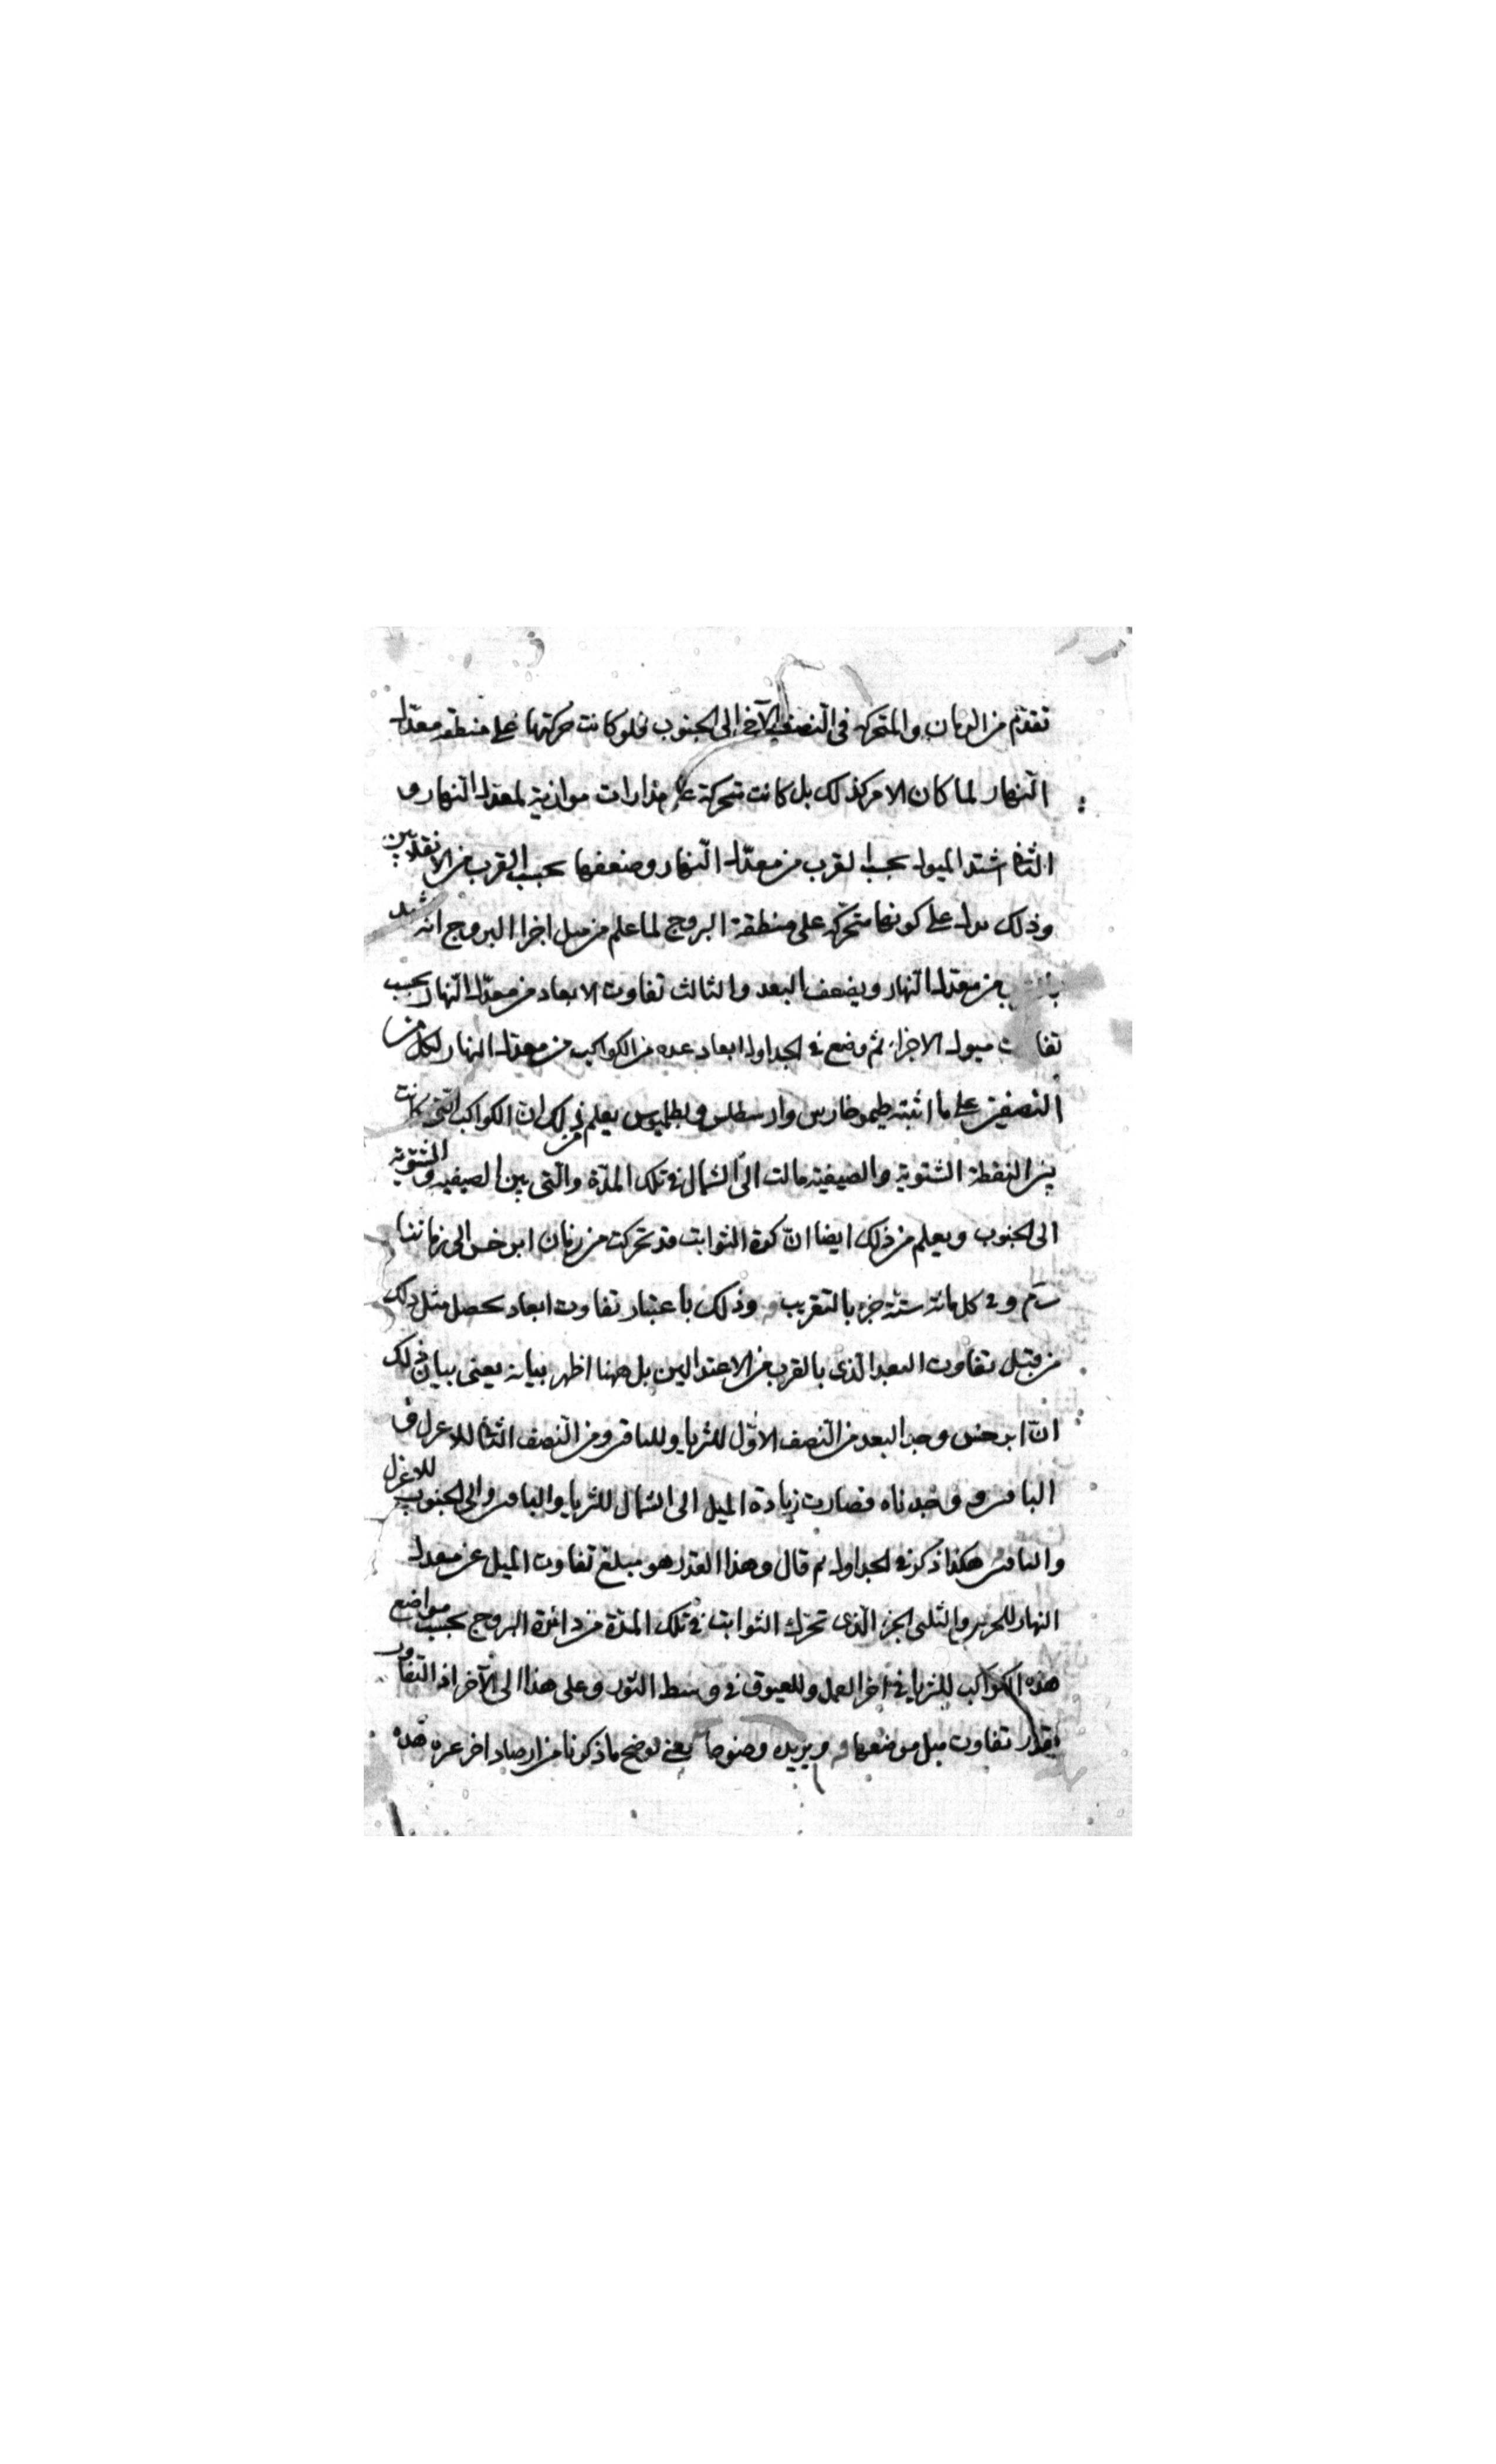 تقدّم من الزمان والمتحركة فى النصف الآخر الى الجنوب فلو كانت حركتها على منطقة معدّل
النهار لما كان الامر كذلك بل كانت متحركة على مدارات موازية لمعدل النهار و
الثانى اشتد الميول بحسب القرب من معدّل النهار وضعفها بحسب القرب من الانقلابين
وذلك يدل على كونها متحركة على منطقة البروج لما علم من ميل اجزا البروج انه يشتد
من معدّل النهار ويضعف البعد والثالث تفاوت الابعاد من معدّل النهار بحسب
تفاوت ميول الاجزاء ثم وضع فى الجداول ابعاد عدة من الكواكب من معدل النهار لكل من
النصفين على ما اثبته طيموخارس وارسطلس وبطلميوس يعلم من ذلك ان الكواكب التى كانت
بين النقطة الشتوية والصيفية مالت الى الشمال فى تلك المدّة والتى بين الصيفية والشتوية
الى الجنوب ويعلم من ذلك ايضا انّ كرة الثوابت قد تحركت من زمان ابرخس الى زماننا
وفى كل مائة سنة جزء بالتقريب وذلك باعتبار تفاوت ابعاد يحصل مثل ذلك
من قبل تفاوت البعد الذى بالقرب من الاعتدالين بل ههنا اظهر بيانه يعنى بيان ذلك
انّ ابرخس وجد البعد من النصف الاوّل للثريا وللباقر ومن النصف الثانى للاعزل و
الباقر ووجدناه فصارت زيادة الميل الى الشمال للثريا والباقر والى الجنوب للاعزل
والباقر هكذا ذكر فى الجداول ثم قال وهذا القدر هو مبلغ تفاوت الميل عن معدل
النهار للجزءين والثلثى الجزء الذى تحرّك الثوابت فى تلك المدّة من دائرة البروج بحسب مواضع
هذه الكواكب للثريا فى اخر الحمل وللعيوق فى وسط الثور وعلى هذا الى الآخر اذ التفاوت
بقدر تفاوت ميل موضعها ويزيده وضوحا يعنى توضح ما ذكرنا من ارصاد اخر